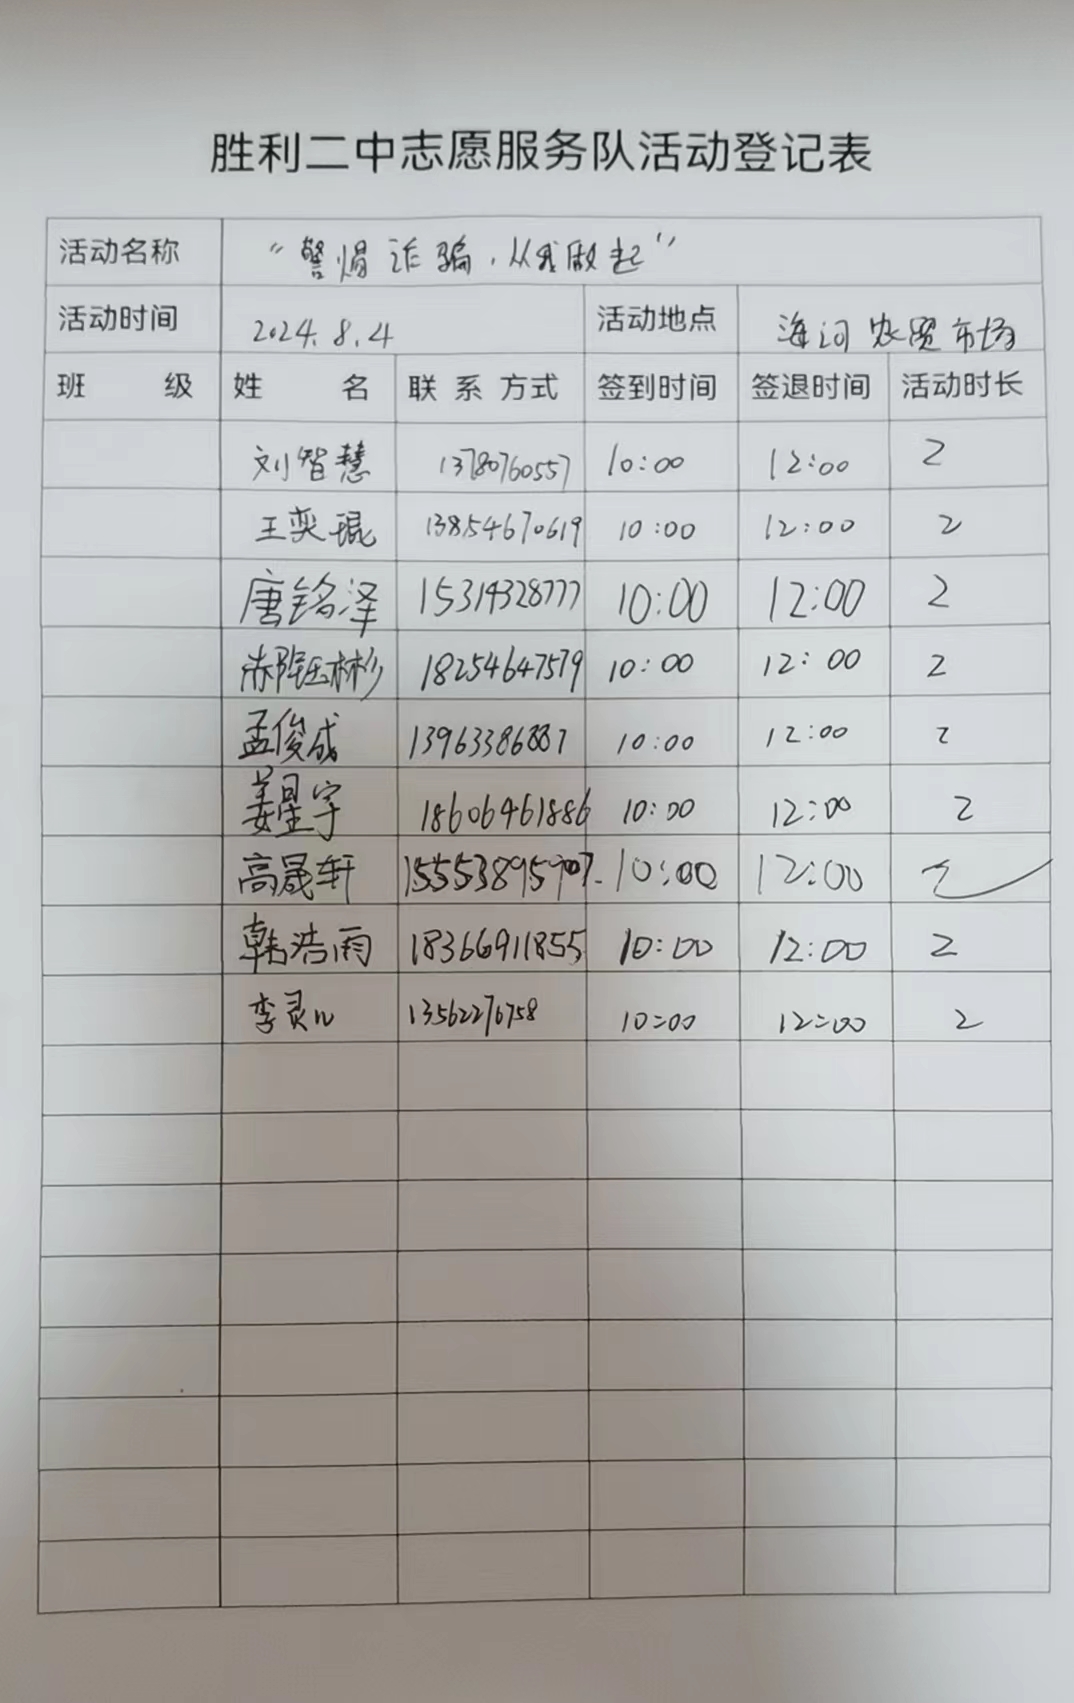 胜利二中志愿服务队活动登记表
活动名称 “警惕诈骗,从我做起”
活动时间 2024.8.4 活动地点 海河农贸市场
班 级 姓 名 联 系 方式 签到时间 签退时间 活动时长
刘智慧 13780760557 10:00 12:00 2
王奕琨 13854670619 10:00 12:00 2
唐铭泽 15314328777 10:00 12:00 2
18254647579 10:00 12:00 2
孟俊成 13963386887 10:00 12:00 2
姜星宇 18606461886 10:00 12:00 2
高晟轩 10:00 12:00 2
韩浩雨 18366911855 10:00 12:00 2
李灵儿 13562276758 10:00 12:00 2